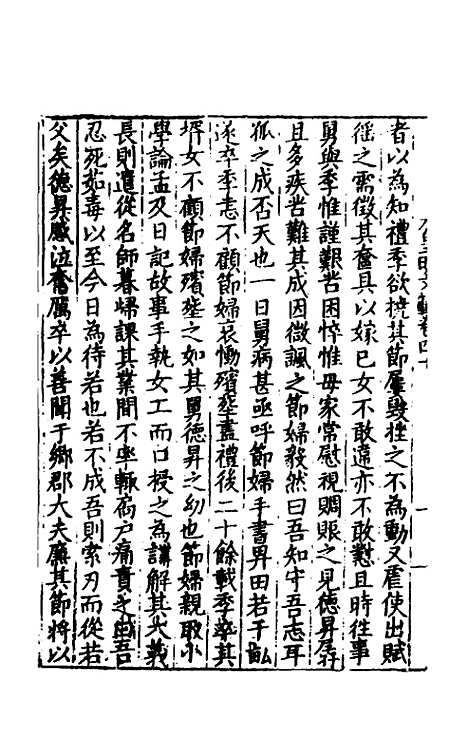 者以為知禮季欲撓其節屢毀挫之不為動又雇使出賦
徭之需徵其奩具以嫁已女不敢違亦不敢懟且時往事
舅與季惟謹艱苦困悴惟毋家常慰視賙賑之見德昇孱
且多疾苦難其成因微諷之節婦毅然曰吾知守吾志耳
孤之成否天也一日舅病甚亟呼節婦手書畀田若干畝
遂卒季恚不顧節婦哀慟殯塟盡禮後二十餘載季卒其
壻女不顧節婦殯塟之如其舅德昇之幼也節婦親取小
學論孟及日記故事手執女工而口授之為講解其大義
長則遣從名師暮歸課其業間不率輒扄户痛責之曰吾
忍死茹毒以至今日為待若也若不成吾則索刃而從若
父矣德昇感泣奮厲卒以善聞于鄉郡大夫廉其節將以